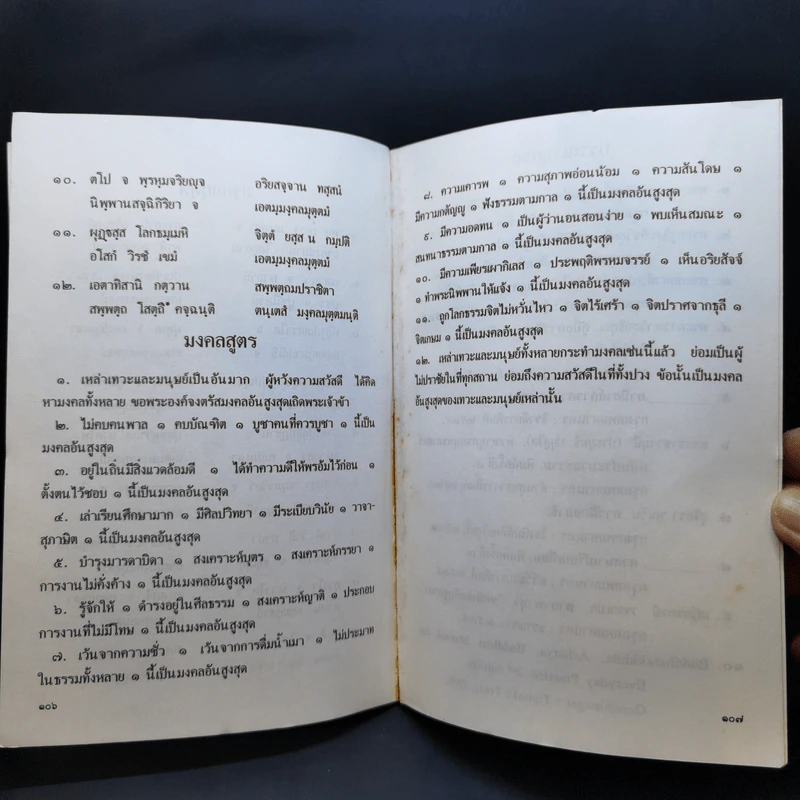 ๑๐. ตโป จ พฺรหฺมจริยญฺจ อริยสจฺจาน ทสฺสนํ
นิพฺพานสจฺฉิกิริยา จ เอตมฺมงฺคลมุตฺตมํ
๑๑. ผุฏฺฐสฺส โลกธมฺเมหิ จิตฺตํ ยสฺส น กมฺปติ
อโสกํ วิรชํ เขมํ เอตมฺมงฺคลมุตฺตมํ
๑๒. เอตาทิสานิ กตฺวาน สพฺพตฺถมปราชิตา
สพฺพตฺถ โสตฺถึ คจฺฉนฺติ ตนฺเตสํ มงฺคลมุตฺตมนฺติ
มงคลสูตร
๑. เหล่าเทวะและมนุษย์เป็นอันมาก ผู้หวังความสวัสดี ได้คิด
หามงคลทั้งหลาย ขอพระองค์จงตรัสมงคลอันสูงสุดเถิดพระเจ้าข้า
๒. ไม่คบคนพาล ๑ คบบัณฑิต ๑ บูชาคนที่ควรบูชา ๑ นี้เป็น
มงคลอันสูงสุด
๓. อยู่ในถิ่นมีสิ่งแวดล้อมดี ๑ ได้ทำความดีให้พรอ้มไว้ก่อน ๑
ตั้งตนไว้ชอบ ๑ นี้เป็นมงคลอันสูงสุด
๔. เล่าเรียนศึกษามาก ๑ มีศิลปวิทยา ๑ มีระเบียบวินัย ๑ วาจา-
สุภาษิต ๑ นี้เป็นมงคลอันสูงสุด
๕. บำรุงมารดาบิดา ๑ สงเคราะห์บุตร ๑ สงเคราะห์ภรรยา ๑
การงานไม่คั่งค้าง ๑ นี้เป็นมงคลอันสูงสุด
๖. รู้จักให้ ๑ ดำรงอยู่ในศีลธรรม ๑ สงเคราะห์ญาติ ๑ ประกอบ
การงานที่ไม่มีโทษ ๑ นี้เป็นมงคลอันสูงสุด
๗. เว้นจากความชั่ว ๑ เว้นจากการดื่มน้ำเมา ๑ ไม่ประมาท
ในธรรมทั้งหลาย ๑ นี้เป็นมงคลอันสูงสุด
๑๐๖
๘. ความเคารพ ๑ ความสุภาพอ่อนน้อม ๑ ความสันโดษ ๑
มีความกตัญญู ๑ ฟังธรรมตามกาล ๑ นี้เป็นมงคลอันสูงสุด
๙. มีความอดทน ๑ เป็นผู้ว่านอนสอนง่าย ๑ พบเห็นสมณะ ๑
สนทนาธรรมตามกาล ๑ นี้เป็นมงคลอันสูงสุด
๑๐. มีความเพียรเผากิเลส ๑ ประพฤติพรหมจรรย์ ๑ เห็นอริยสัจจ์
๑ ทำพระนิพพานให้แจ้ง ๑ นี้เป็นมงคลอันสูงสุด
๑๑. ถูกโลกธรรมจิตไม่หวั่นไหว ๑ จิตไร้เศร้า ๑ จิตปราศจากธุลี ๑
จิตเกษม ๑ นี้เป็นมงคลอันสูงสุด
๑๒. เหล่าเทวะและมนุษย์ทั้งหลายกระทำมงคลเช่นนี้แล้ว ย่อมเป็นผู้
ไม่ปราชัยในที่ทุกสถาน ย่อมถึงความสวัสดีในที่ทั้งปวง ข้อนั้นเป็นมงคล
อันสูงสุดของเทวะและมนุษย์เหล่านั้น
๑๐๗